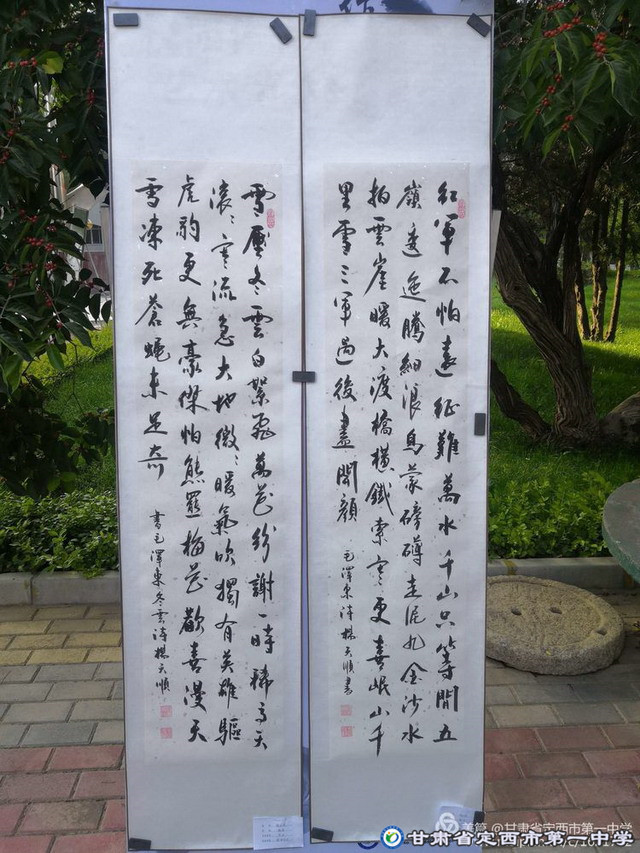 紅軍不怕遠征難萬水千山只等閒五
嶺逶迤騰細浪烏蒙磅礴走泥丸金沙水
拍雲崖暖大渡橋橫鐵索寒更喜岷山千
里雪三軍過後盡開顏
毛澤東詩楊天順書
雪壓冬雲白絮飛萬花紛謝一時稀高天
滾〻寒流急大地微〻暖氣吹獨有英雄驅
虎豹更無豪傑怕熊羆梅花歡喜漫天
雪凍死蒼蠅未足奇
書毛澤東冬雲詩楊天順
美篇 @甘肃省定西市第一中学
甘肃省定西市第一中学